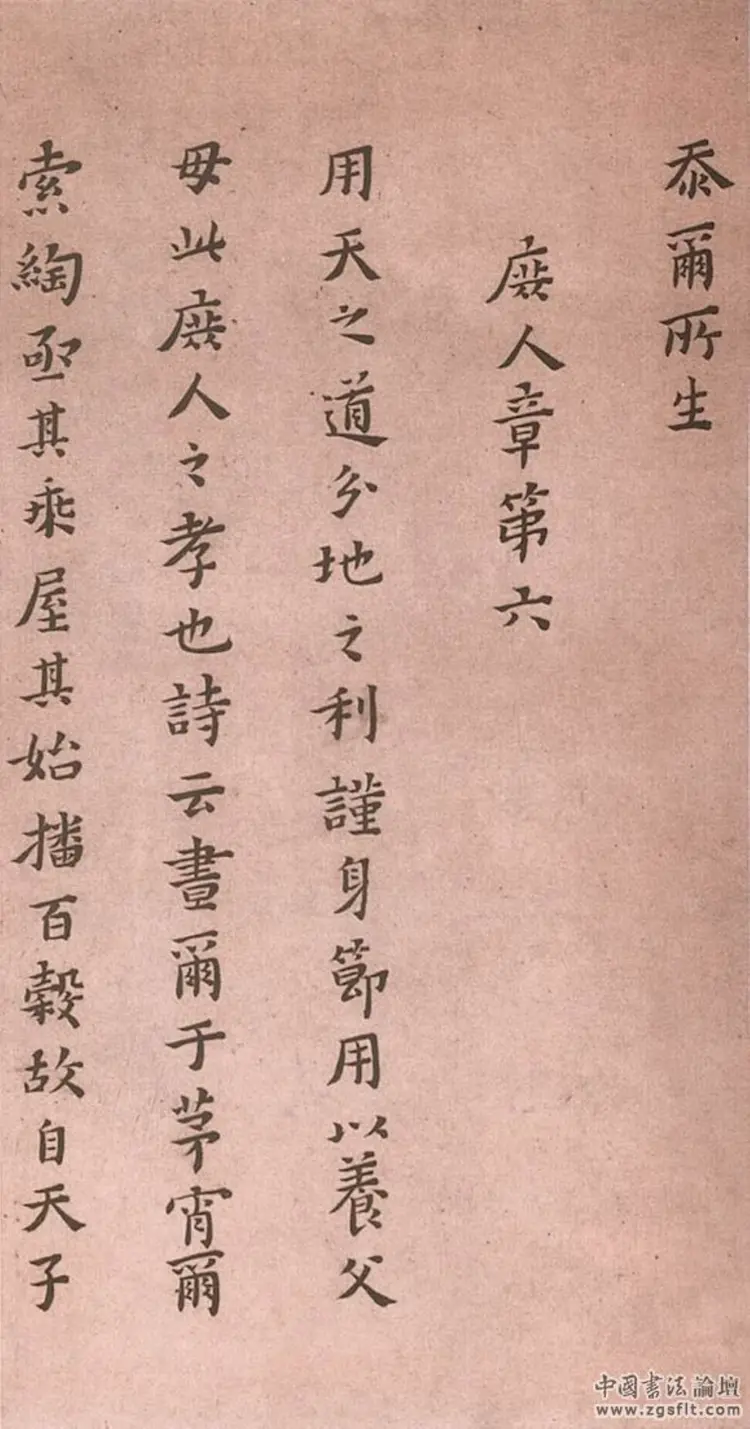 忝爾所生
庶人章第六
用天之道分地之利謹身節用以養父
母此庶人之孝也詩云晝爾于茅宵爾
索綯亟其乘屋其始播百穀故自天子
中國书法論壇
www.zgsflt.com